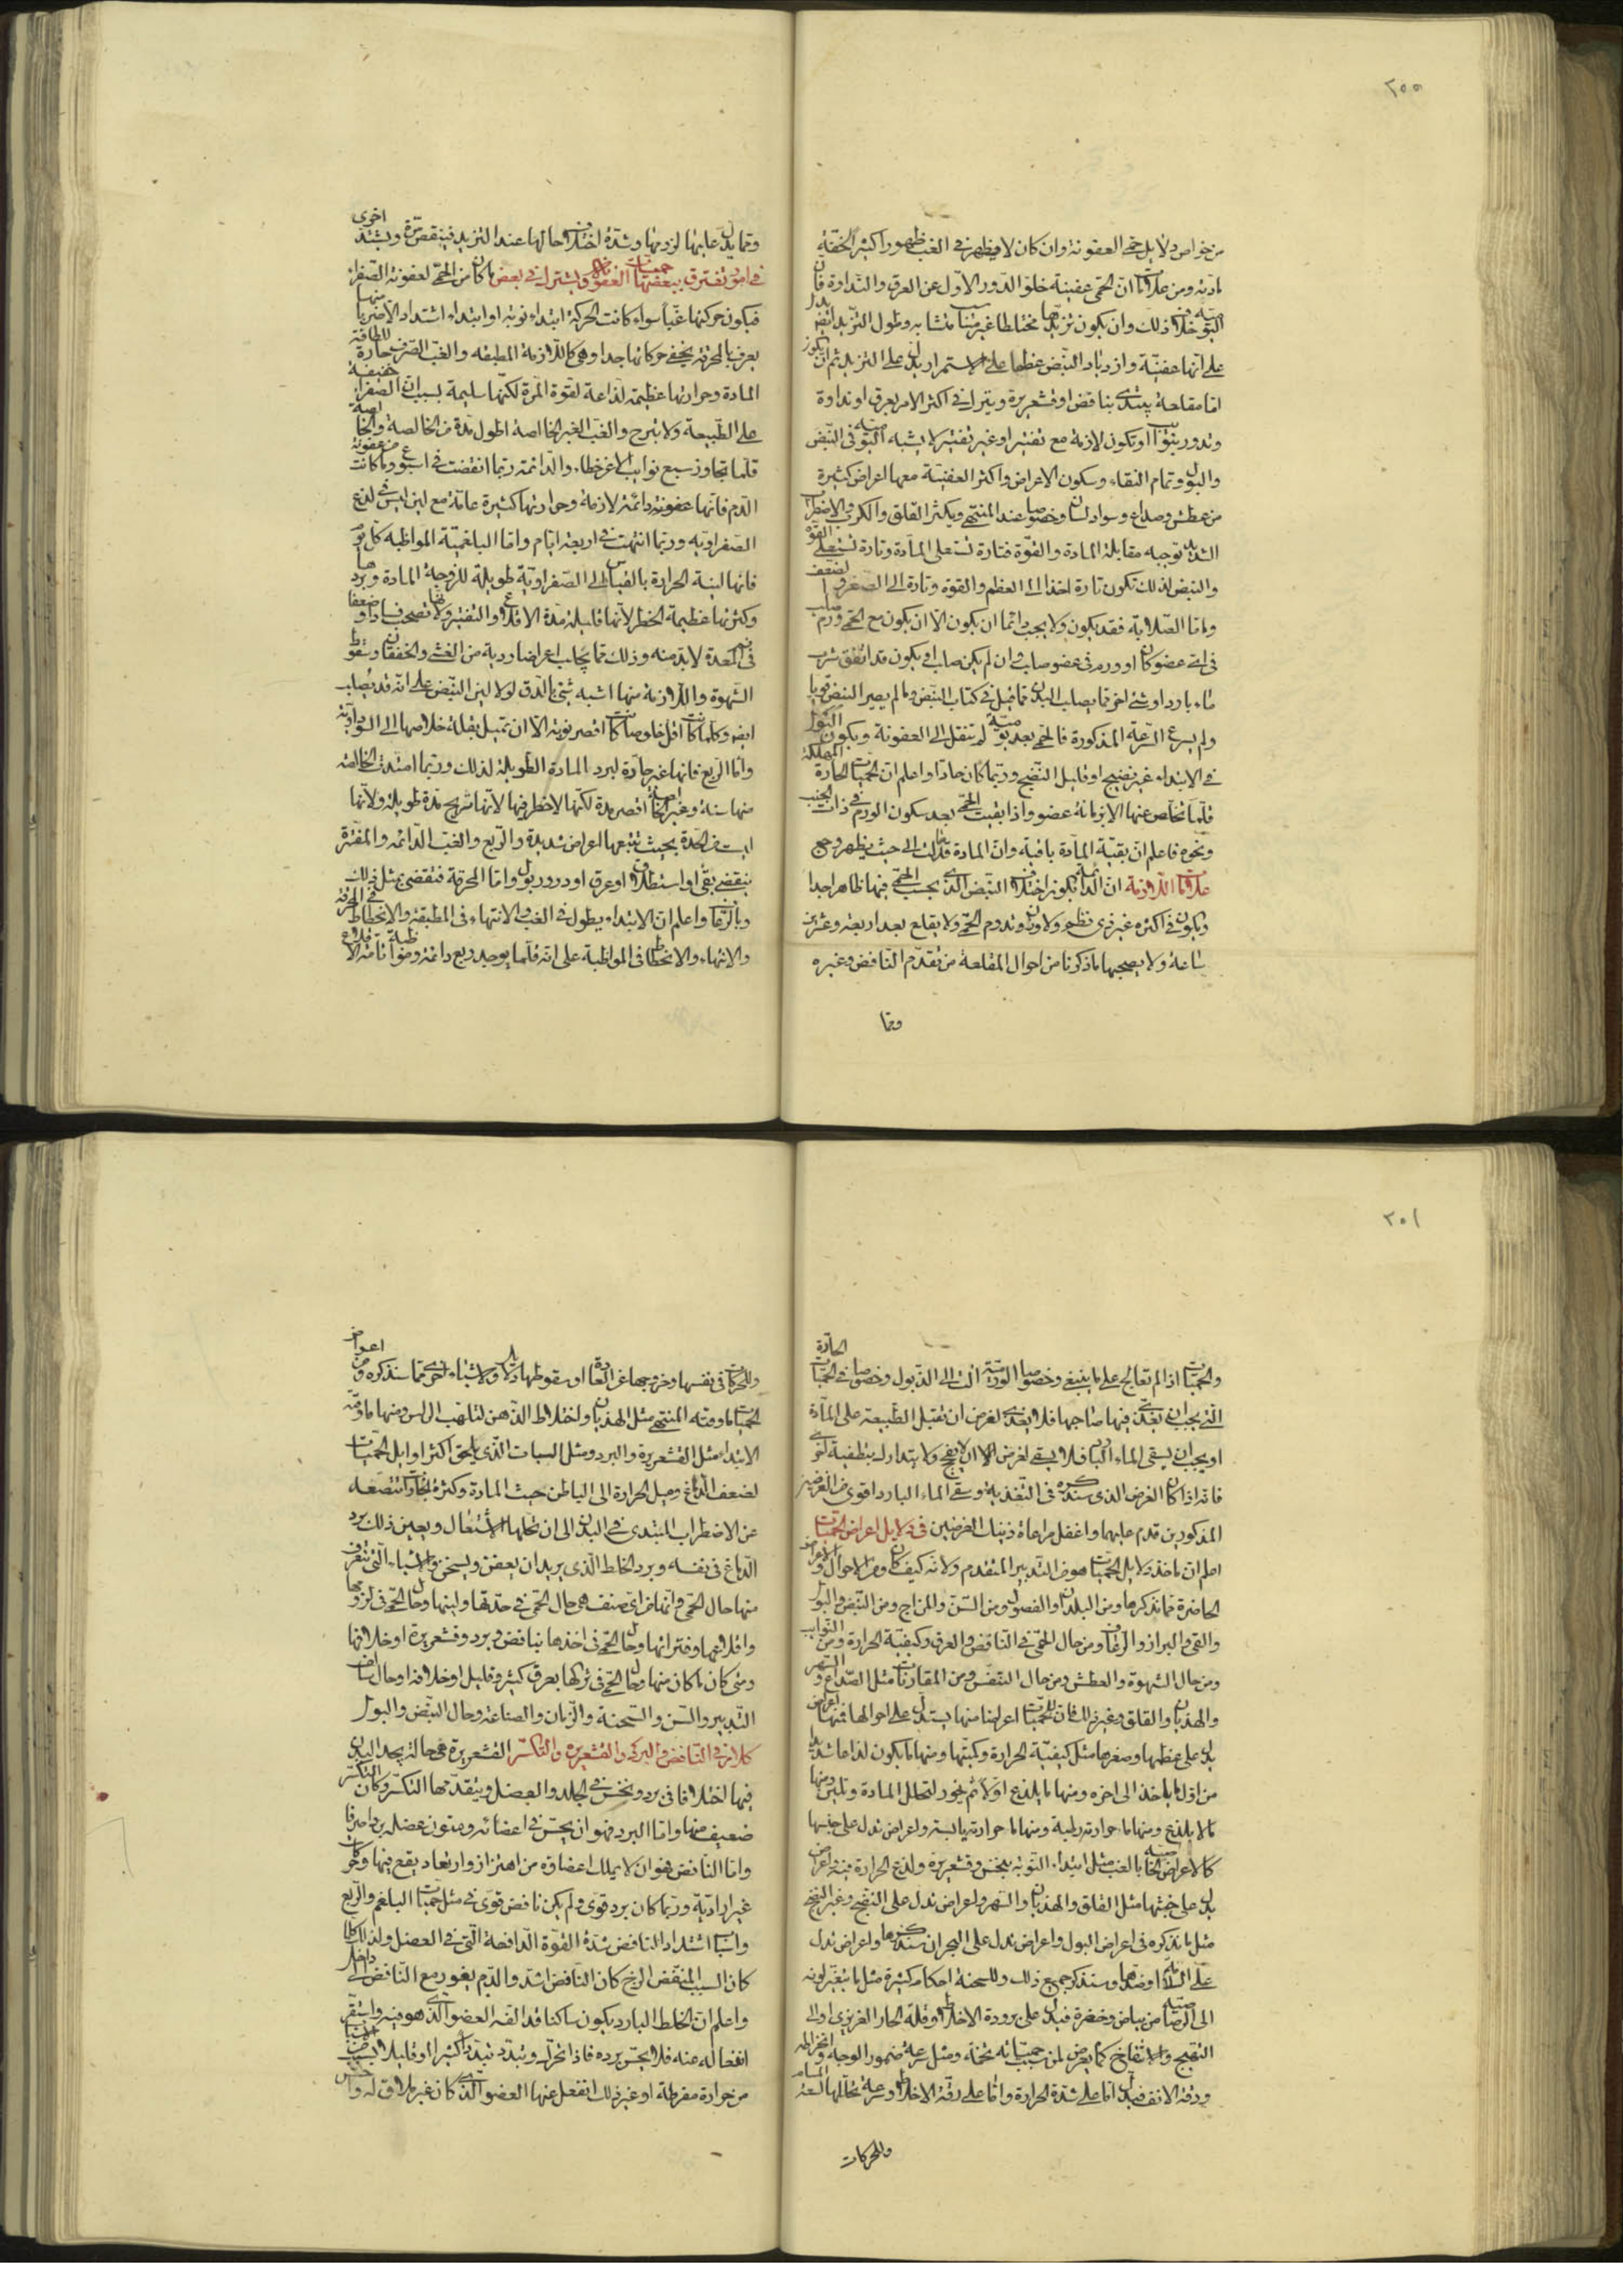 ٢٥٥
من خواص دلايل حمى العفونة وان كان لا يظهر في الغب ظهورا كثيرا لخفة
مادته ومن علاماتها ان الحمى عفنية خلو الدور الاول عن العرق والنداوة فان
اليومية خلاف ذلك وان يكون تزيدها مختلطا غير متناسب متشابه وطول التزيد ايضا يدل
على انها عفنية وازدياد النبض عظما على الاستمرار يدل على التزيد ثم ان يكون
اما مقلعة يبتدى بنافض او قشعريرة ويترك في اكثر الامر بعرق او نداوة
وتدور بنوائب او تكون لازمة مع تفتير او غير تفتير لا يشبه اليومية في النبض
والبول وتمام النقاء وسكون الاعراض واكثر العفنية معها اعراض كثيرة
من عطش وصداع وسواد لسان وخصوصا عند المنتهى ويكثر القلق والكرب والاضطراب
الشديد توجبه مقابلة المادة والقوة فتارة تستعلى المادة وتارة تستعلى القوة
والنبض لذلك تكون تارة اخذا الى العظم والقوة وتارة الى الصغر والضعف
واما الصلابة فقد يكون ولا يجب دائما ان يكون الا ان يكون مع الحمى ورم صلب
في اى عضو كان او ورم في عضو صلب اى ان لم يكن صلبا او يكون قد اتفق شرب
ماء بارد او شئ اخر مما يصلب البدن مما قيل في كتاب النبض وما لم يصير النبض قويا
ولم يسرع السرعة المذكورة فالحمى بعد يومية لم تنتقل الى العفونة ويكون البول
في الابتداء غير نضيج او قليل النضج وربما كان حادا واعلم ان الحميات الحارة المهلكة
قلما تخلص عنها الا بزمانة عضو واذا بقيت الحمى بعد سكون الورم في ذات الجنب
ونحوه فاعلم ان بقية المادة باقية وان المادة قد مالت الى حيث يظهر وجع
علامات اللازمة ان الدائمة يكون اختلاف النبض الذى بحسب الحمى فيها ظاهرا جدا
ويكون في اكثره غير ذى نظم ولا وزن وتدوم الحمى ولا يقلع بعد اربعة وعشرين
ساعة ولا يصحبها ما ذكرنا من احوال المقلعة من تقدم النافض وغيره
ومما
ومما يدل عليها لزومها وشدة اختلاف حالها عند التزيد فينقص مرة ويشتد اخرى
في امور تفترق ببعضها حميات العفونة ويشترك في بعض ما كان من الحمى لعفونة الصفراء
فيكون حركتها غبا سواء كانت الحركة ابتداء نوبة او ابتداء اشتداد الا ضربا منها
يعرف بالمحرقة يخفى حركاتها جدا وهى كاللازمة المطبقة والغب الصرف حارة للطافة
المادة وحرارتها عظيمة لذاعة لقوة المرة لكنها سليمة بسبب ان الصفراء خفيفة
على الطبيعة ولا تبرح والغب الغير الخالصة اطول مدة من الخالصة والخالصة
قلما تجاوز سبع نوائب الا عن خطاء والدائمة ربما انقضت في اسبوع وما كانت من عفونة
الدم فانها عفونة دائمة لازمة وحرارتها كثيرة عامة مع لين ليس في لذع
الصفراوية وربما انتهت في اربعة ايام واما البلغمية المواظبة كل يوم
فانها لينة الحرارة بالقياس الى الصفراوية طويلة للزوجة المادة وبردها
وكثرتها عظيمة الخطر لانها قليلة مدة الاقلاع والتفتير ولانها تصحب فسادا وضعفا
في فم المعدة لا بد منه وذلك مما يجلب اعراضا ردية من الغشى والخفقان وسقوط
الشهوة واللازمة منها اشبه شئ بالدق لولا لين النبض على انه قد يصلب
ايضا وكلما كانت اقل خلوصا كانت اقصر نوبة الا ان تميل بقلة خلاصها الى السوداوية
واما الربع فانها غير حادة لبرد المادة الطويلة لذلك وربما امتدت الخالصة
منها سنة وغير الخالصة اقصر مدة لكنها لا خطر فيها لانها تريح مدة طويلة ولانها
ليست من الحدة بحيث تتبعها اعراض شديدة والربع والغب الدائمة والمفترة
ينقضى بقى او استطلاق او عرق او درور بول واما المحرقة فتنقضى بمثل ذلك
وبالرعاف واعلم ان الابتداء يطول في الغب والانتهاء في المطبقة والانحطاط في المحرقة
والانتهاء والانحطاط في المواظبة على انه قلما يوجد ربع دائمة ومواظبة تامة الاقلاع
٢٠١
والحميات الحادة اذا لم تعالج على ما ينبغى وخصوصا الورمية الت الى الذبول وخصوصا في الحميات
التى يجب ان يغذى فيها صاحبها فلا يغذى لغرض ان تقبل الطبيعة على المادة
او يجب ان يسقى الماء البارد فلا يسقى لغرض الا لا يفج ولا يتدارك بتطفية اخرى
فانه اذا كان الغرض الذى سنذكره في التغذية وسقى الماء البارد اقوى من الغرضين
المذكورين قدم عليهما واغفل مراعاة ذينك الغرضين في دلايل اعراض الحميات
اعلم ان ماخذ دلايل الحميات هو من التدبير المتقدم ولانه كيف كان ومن الاحوال والاعراض
الحاضرة مما نذكرها ومن البلدان والفصول ومن السن والمزاج ومن النبض والبول
والقى والبراز والرعاف ومن حال الحمى في النافض والعرق وكيفية الحرارة ومن النوائب
ومن حال الشهوة والعطش ومن حال التنفس ومن المقارنات مثل الصداع والسهر
والهذيان والقلق وغير ذلك فان للحميات اعراضا منها يستدل على احوالها فمنها اعراض
يدل على عظمها وصغرها مثل كيفية الحرارة وكميتها ومنها ما يكون لذاعا شديدا
من اول ما ياخذ الى اخره ومنها ما يلذع اولا ثم يخور لتحلل المادة وتلين ومنها
ما لا يلذع ومنها ما حرارته رطبة ومنها ما حرارته يابسة واعراض تدل على جنسها
كالاعراض الخاصية بالغب مثل ابتداء النوبة بنخس وقشعريرة ولذع الحرارة ومنه اعراض
يدل على خبثها مثل القلق والهذيان والسهر واعراض تدل على النضج وغير النضج
مثل ما نذكره في اعراض البول واعراض تدل على البحران سنذكرها واعراض تدل
على السلامة او ضدها وسنذكر جميع ذلك وللسحنة احكام كثيرة مثل ما يتغير لونه
الى الرصاصية من بياض وخضرة فيدل على برودة الاخلاط وقلة الحار الغريزى او الى
التهيج والانتفاخ كما يعرض لمن سبب حمياته تخمة ومثل سرعة ضمور الوجه وانخراطه
ودقة الانف فيدل اما على شدة الحرارة واما على رقة الاخلاط وسرعة تحللها لسعة المسام
وللحركات
وللحركات في نفسها وخروجها عن العادة او سقوطها دلالة ولاشياء اخرى مما سنذكره ومن اعراض
الحميات ما وقته المنتهى مثل الهذيان واختلاط الذهن لتلهب الراس ومنها ما وقته
الابتداء مثل القشعريرة والبرد ومثل السبات الذى يلحق اكثر اوايل الحميات
لضعف الدماغ وميل الحرارة الى الباطن حيث المادة وكثرة البخارات تتصعد
عن الاضطراب المبتدى في البدن الى ان تحللها الاشتعال ويعين ذلك برد
الدماغ في نفسه وبرد الخلط الذى يريد ان يعفن ويسخن والاشياء التى تتعرف
منها حال الحمى وانها من اى صنف هى حال الحمى في حدتها ولينها وحال الحمى في لزومها
واقلاعها وفتراتها وحال الحمى في اخذها بنافض وبرد وقشعريرة او خلافها
ومتى كان ما كان منها وحال الحمى في تركها بعرق كثير وقليل او خلافه او حال سالف
التدبير والسن والسحنة والزمان والصناعة وحال النبض والبول
كلام في النافض والبرد والقشعريرة والتكسر القشعريرة هى حالة يجد البدن
فيها اختلافا في برد ونخس في الجلد والعضل ويتقدمها التكسر وكان التكسر
ضعيف منها واما البرد فهو ان يحس في اعضائه ومتون عضله بردا صرفا
واما النافض فهو ان لا يملك اعضاؤه من اهتزاز وارتعاد يقع فيها وحركات
غير ارادية وربما كان برد قوى ولم يكن نافض قوى في مثل حميات البلغم والربع
واسباب اشتداد النافض شدة القوة الدافعة التى في العضل ولذلك كلما
كان السبب المنفض الزج كان النافض اشد والدم يغور مع النافض الى داخل
واعلم ان الخلط البارد يكون ساكنا قد الفه العضو الذى هو فيه واستقر
انفعاله عنه فلا يحس برده فاذا تحرك وتبدد تبددا كثيرا او قليلا بسبب
من حرارة مفرطة او غير ذلك انفعل عنها العضو الذى كان غير ملاق له واحس